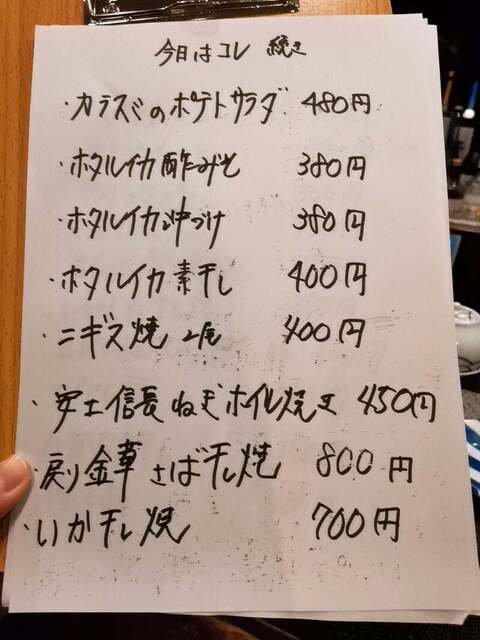 今日はコレ 続き
・カラスミのポテトサラダ 480円
・ホタルイカ酢みそ 380円
・ホタルイカ沖づけ 380円
・ホタルイカ素干し 400円
・ニギス焼 2尾 400円
・安土信長ねぎホイル焼き 450円
・戻り金華さば干し焼 800円
・いか干し焼 700円